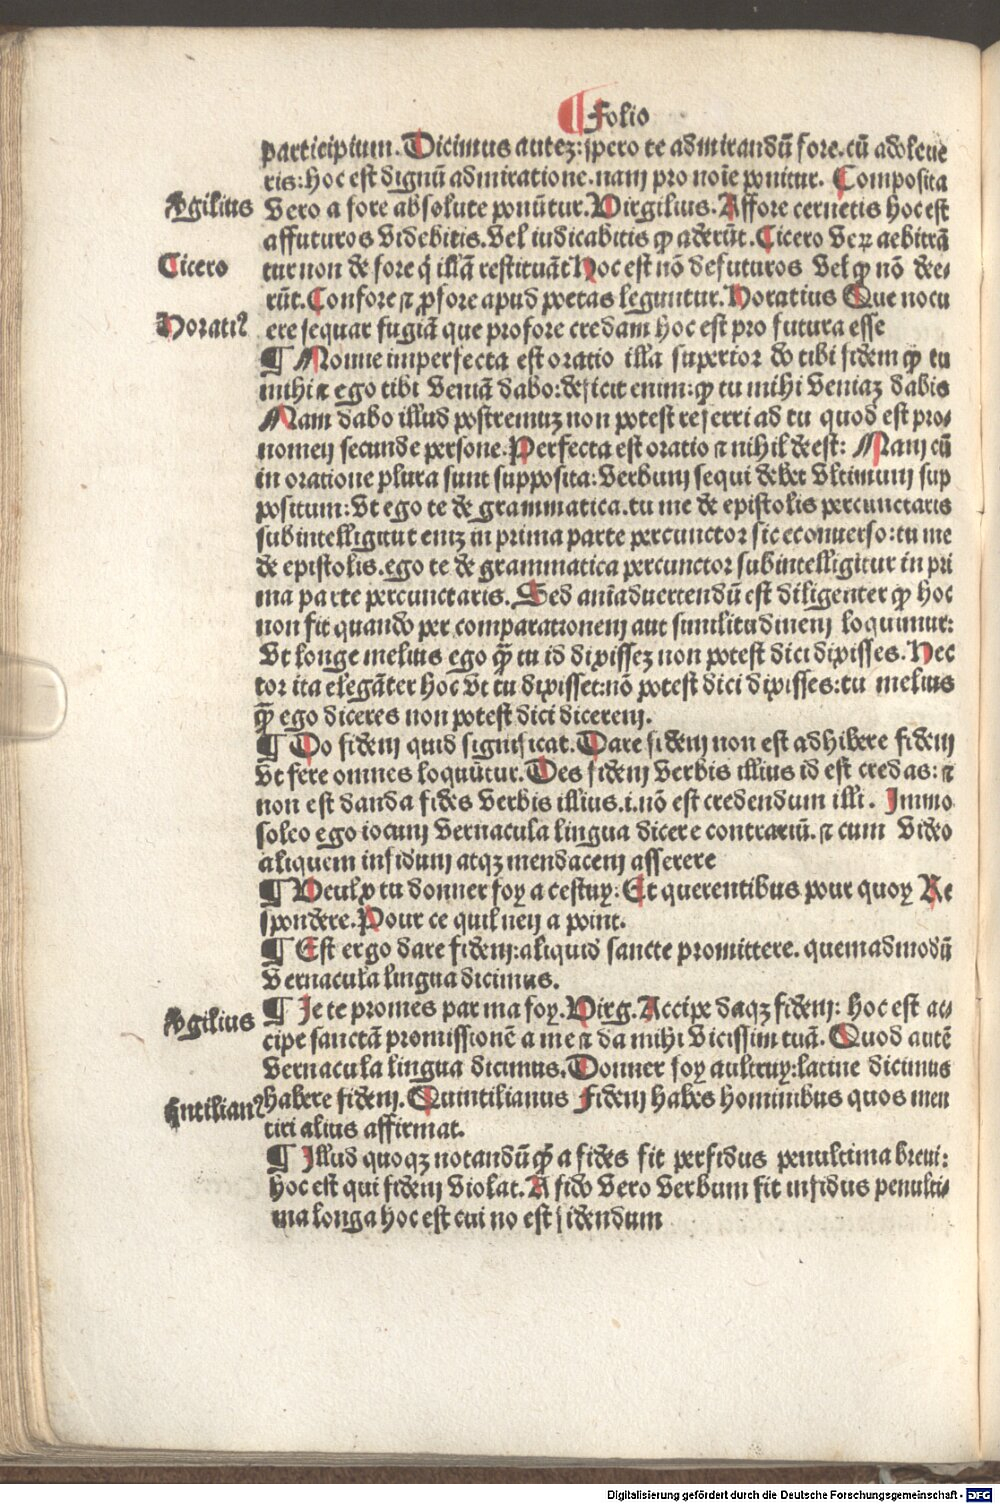 ¶ Folio
participium. Dicimus autez: spero te admirandū fore. cū adoleue
ris: hoc est dignū admiratione. nam pro noīe ponitur. Composita
Virgilius
Vero a fore absolute ponūtur. Virgilius. Affore cernetis hoc est
affuturos Videbitis. Vel iudicabitis ꝙ aderūt. Cicero Veꝝ aebitrā
Cicero
tur non de fore q̄ illā restituāt hoc est nō defuturos Vel ꝙ nō dee-
rūt. Confore ⁊ ꝓfore apud poetas leguntur. Horatius Que nocu
Horatiꝰ
ere sequar fugiā que profore credam hoc est pro futura esse
¶ Nonne imperfecta est oratio illa superior do tibi fidem ꝙ tu
mihi ⁊ ego tibi Veniā dabo: deficit enim: ꝙ tu mihi Veniaz dabis
Nam dabo illud postremuz non potest referri ad tu quod est pro-
nomen secunde persone. Perfecta est oratio ⁊ nihil deest: Nam cū
in oratione plura sunt supposita: Verbum sequi debet Vltimum sup
positum: Vt ego te de grammatica. tu me de epistolis percunctaris
subintelligitut eniz in prima parte percunctor sic econuerso: tu me
de epistolis. ego te de grammatica percunctor subintelligitur in pri
ma parte percunctaris. Sed aniaduertendū est diligenter ꝙ hoc
non fit quando per comparationem aut similitudinem loquimur:
Vt longe melius ego ꝙ̄ tu id dixissez non potest dici dixisses. Nec
tor ita elegāter hoc Vt tu dixisset: nō potest dici dixisses: tu melius
ꝙ̄ ego diceres non potest dici dicerem.
¶ Do fidem quid significat. Dare fidem non est adhibere fidem
Vt fere omnes loquūtur. Des fidem Verbis illius id est credas: ⁊
non est danda fides Verbis illius. i. nō est credendum illi. Immo
soleo ego iocum Vernacula lingua dicere contrariū. ⁊ cum Video
aliquem infidum atqz mendacem asserere
¶ Veulx tu donner foy a cestuy: Et querentibus pour quoy Re
spondere. Pour ce quil nen a point.
¶ Est ergo dare fidem: aliquid sancte promittere. quemadmodū
Vernacula lingua dicimus.
¶ Je te promes par ma foy. Virg. Accipe daqz fidem: hoc est ac-
Virgilius
cipe sanctā promissionē a me ⁊ da mihi Vicissim tuā. Quod autē
Vernacula lingua dicimus. Donner foy aultruy: latine dicimus
Quītilianꝰ
habere fidem. Quintilianus Fidem habes hominibus quos men
tiri alius affirmat.
¶ Illud quoqz notandū ꝙ̄ a fides fit perfidus penultima breui:
hoc est qui fidem Violat. A fido Vero Verbum fit infidus penulti-
ma longa hoc est cui no est fidendum
Digitalisierung gefördert durch die Deutsche Forschungsgemeinschaft - DFG